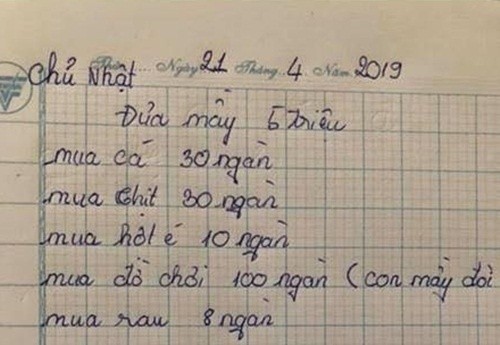 Chủ Nhật Ngày 21 Tháng 4 Năm 2019
Đưa mầy 5 triệu
mua cá 30 ngàn
mua thịt 30 ngàn
mua hột é 10 ngàn
mua đồ chơi 100 ngàn (con mầy đòi
mua rau 8 ngàn